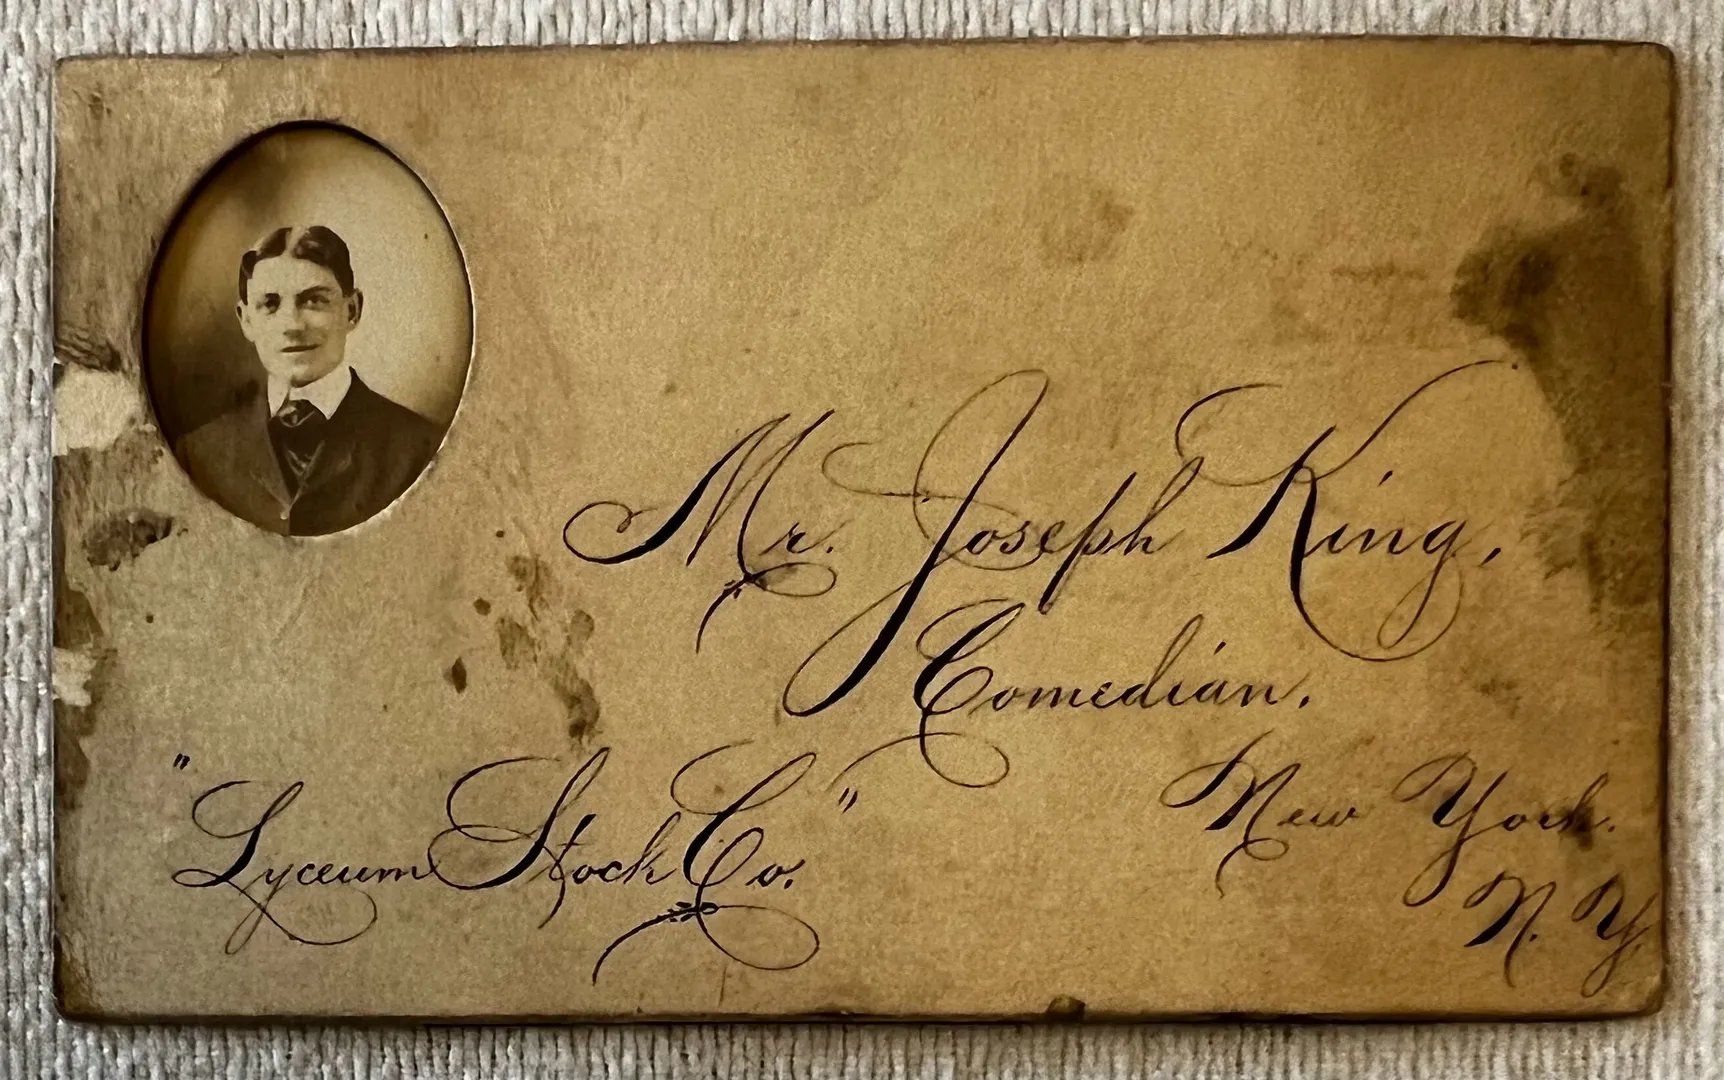 Mr. Joseph King,
Comedian.
"Lyceum Stock Co."
New York.
N. Y.